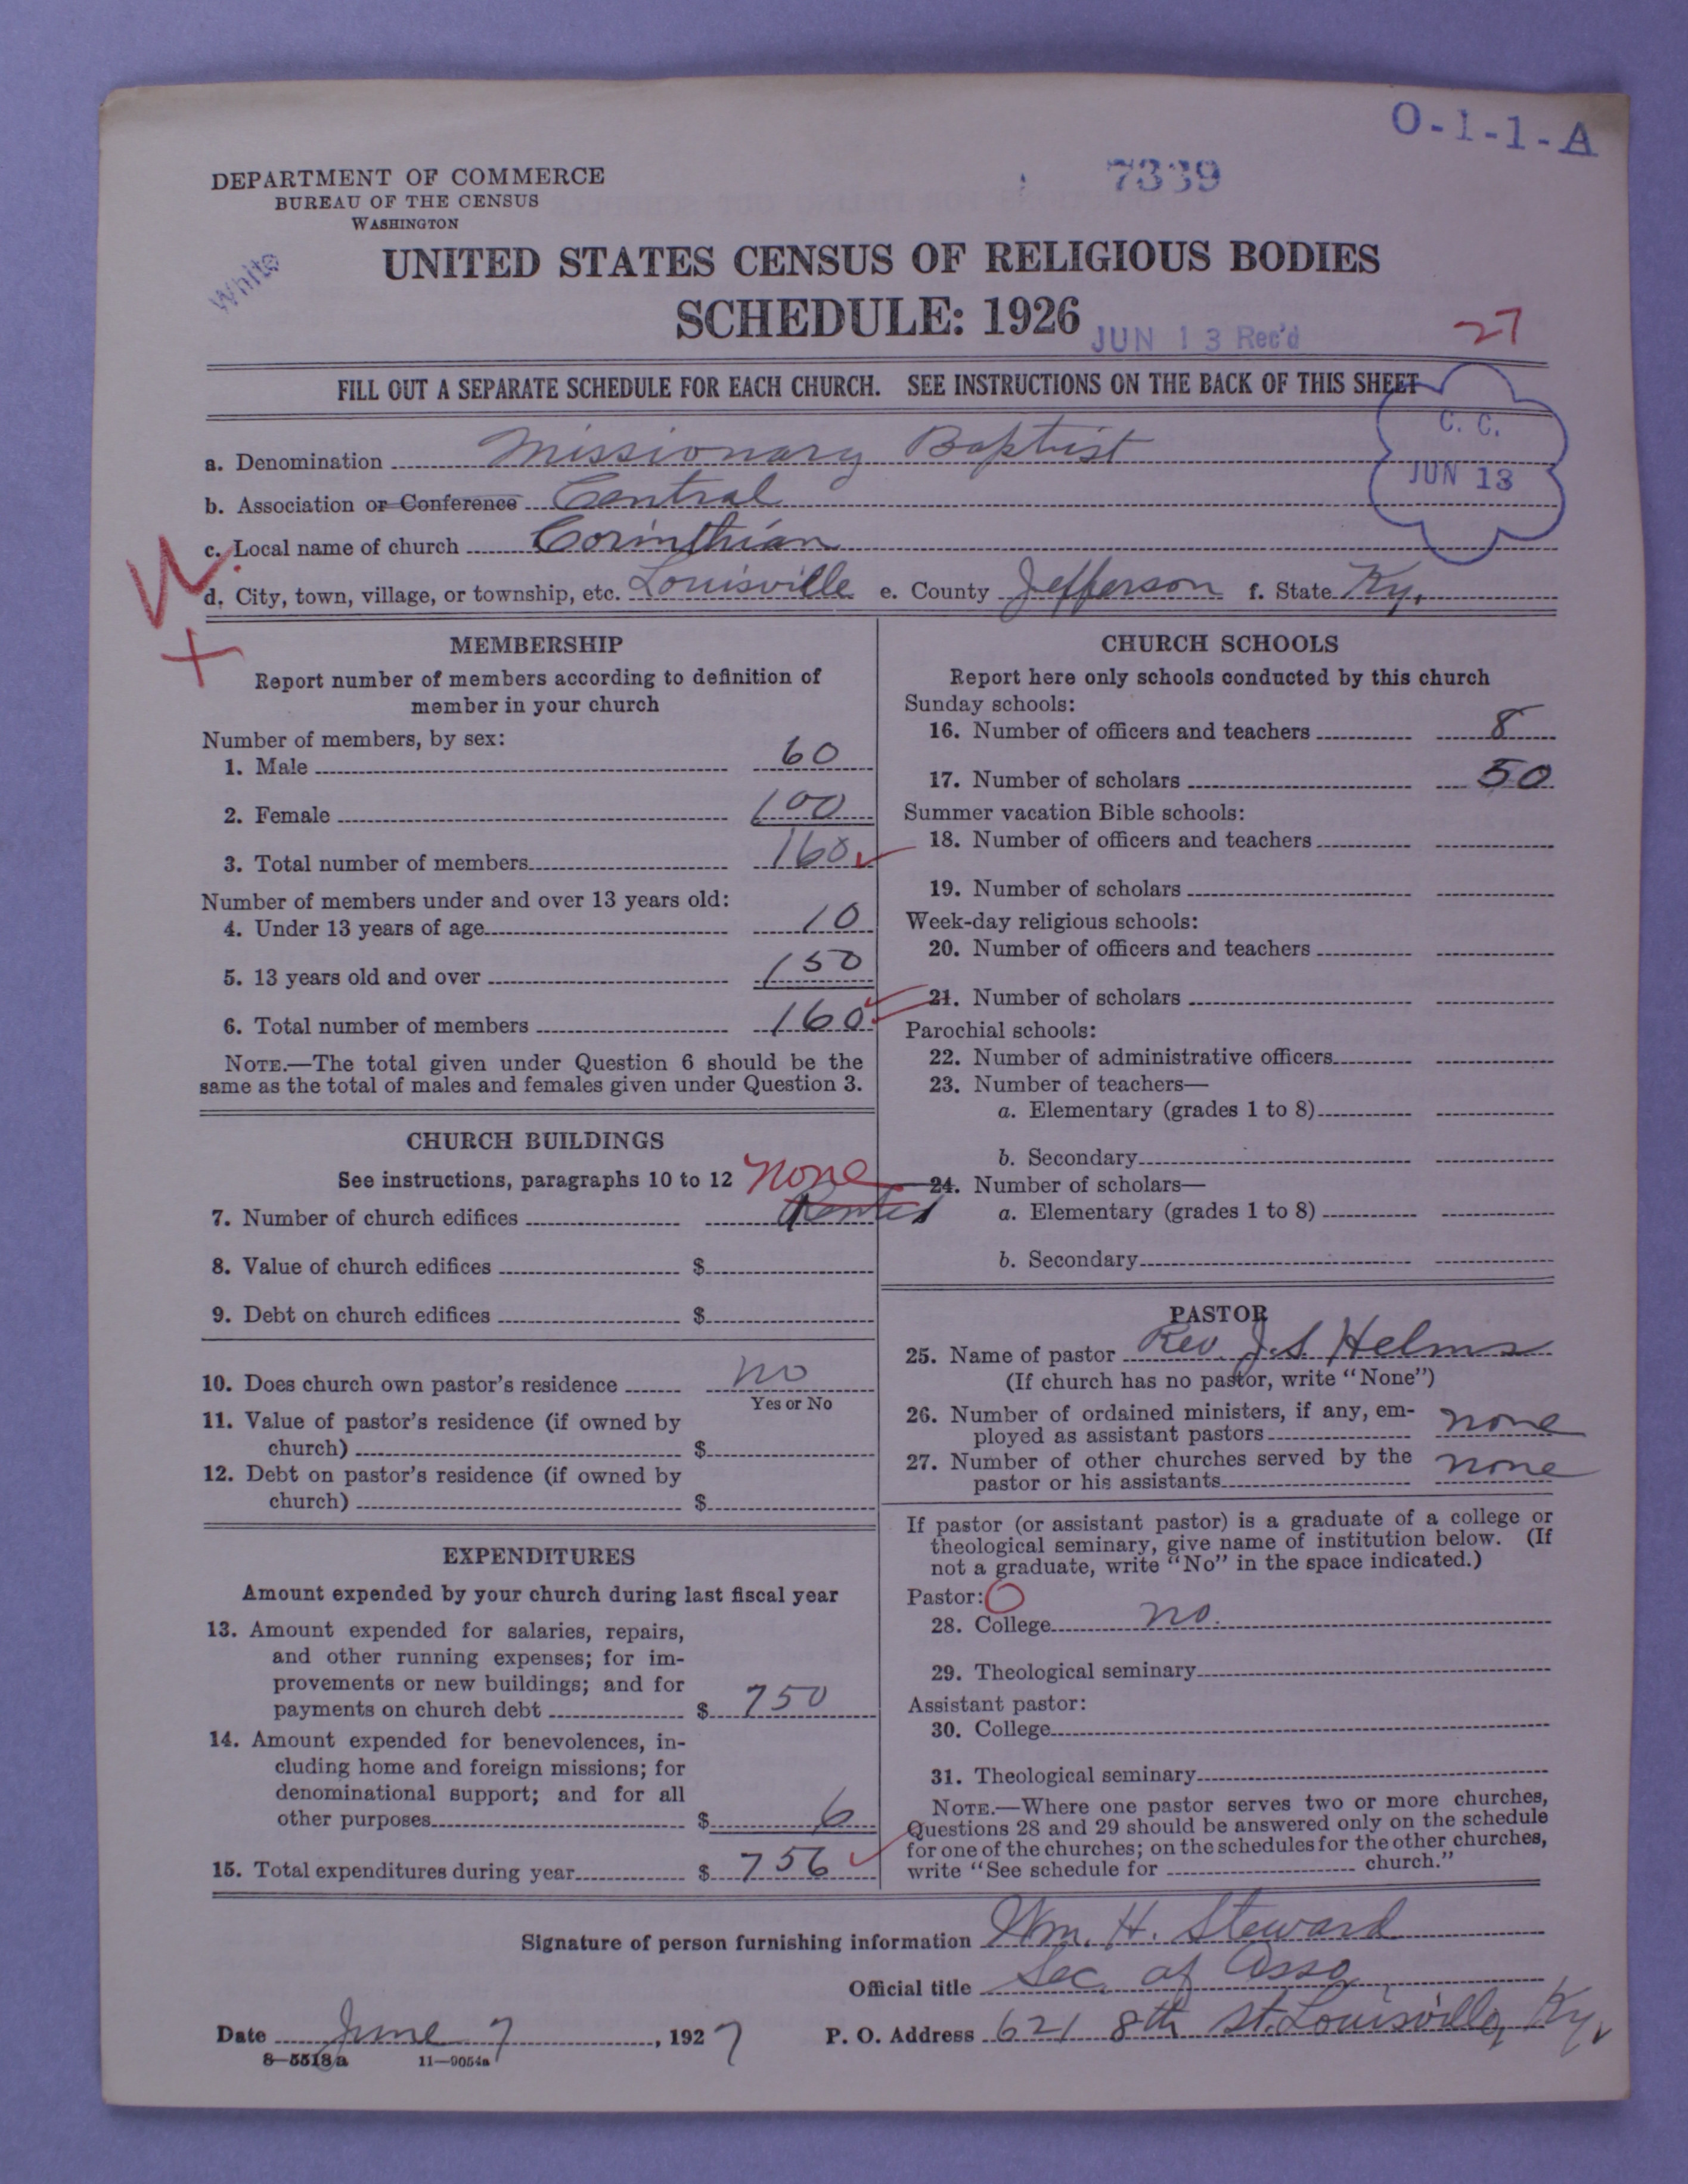 O-1-1-A
DEPARTMENT OF COMMERCE
BUREAU OF THE CENSUS
WASHINGTON
7339
White
UNITED STATES CENSUS OF RELIGIOUS BODIES
SCHEDULE: 1926
JUN 13 Rec'd
27
FILL OUT A SEPARATE SCHEDULE FOR EACH CHURCH. SEE INSTRUCTIONS ON THE BACK OF THIS SHEET
C. C.
JUN 13
a. Denomination Missionary Baptist
b. Association or Conference Central
c. Local name of church Corinthian
d. City, town, village, or township, etc. Louisville e. County Jefferson f. State Ky.
MEMBERSHIP
Report number of members according to definition of
member in your church
Number of members, by sex:
1. Male 60
2. Female 100
3. Total number of members 160
Number of members under and over 13 years old:
4. Under 13 years of age 10
5. 13 years old and over 150
6. Total number of members 160
NOTE.—The total given under Question 6 should be the
same as the total of males and females given under Question 3.
CHURCH BUILDINGS
See instructions, paragraphs 10 to 12 none
7. Number of church edifices Rented
8. Value of church edifices $
9. Debt on church edifices $
10. Does church own pastor's residence no
Yes or No
11. Value of pastor's residence (if owned by
church) $
12. Debt on pastor's residence (if owned by
church) $
EXPENDITURES
Amount expended by your church during last fiscal year
13. Amount expended for salaries, repairs,
and other running expenses; for im-
provements or new buildings; and for
payments on church debt $ 750
14. Amount expended for benevolences, in-
cluding home and foreign missions; for
denominational support; and for all
other purposes $ 6
15. Total expenditures during year $ 756
CHURCH SCHOOLS
Report here only schools conducted by this church
Sunday schools:
16. Number of officers and teachers 8
17. Number of scholars 50
Summer vacation Bible schools:
18. Number of officers and teachers
19. Number of scholars
Week-day religious schools:
20. Number of officers and teachers
21. Number of scholars
Parochial schools:
22. Number of administrative officers
23. Number of teachers—
a. Elementary (grades 1 to 8)
b. Secondary
24. Number of scholars—
a. Elementary (grades 1 to 8)
b. Secondary
PASTOR
25. Name of pastor Rev. J. S. Helms
(If church has no pastor, write "None")
26. Number of ordained ministers, if any, em-
ployed as assistant pastors none
27. Number of other churches served by the
pastor or his assistants none
If pastor (or assistant pastor) is a graduate of a college or
theological seminary, give name of institution below. (If
not a graduate, write "No" in the space indicated.)
Pastor: O
28. College no.
29. Theological seminary
Assistant pastor:
30. College
31. Theological seminary
NOTE.—Where one pastor serves two or more churches,
Questions 28 and 29 should be answered only on the schedule
for one of the churches; on the schedules for the other churches,
write "See schedule for church."
Signature of person furnishing information Wm. H. Steward
Official title Sec. of Asso
Date June 7, 1927 P. O. Address 621 8th St. Louisville, Ky.
8—5518a 11—9054a